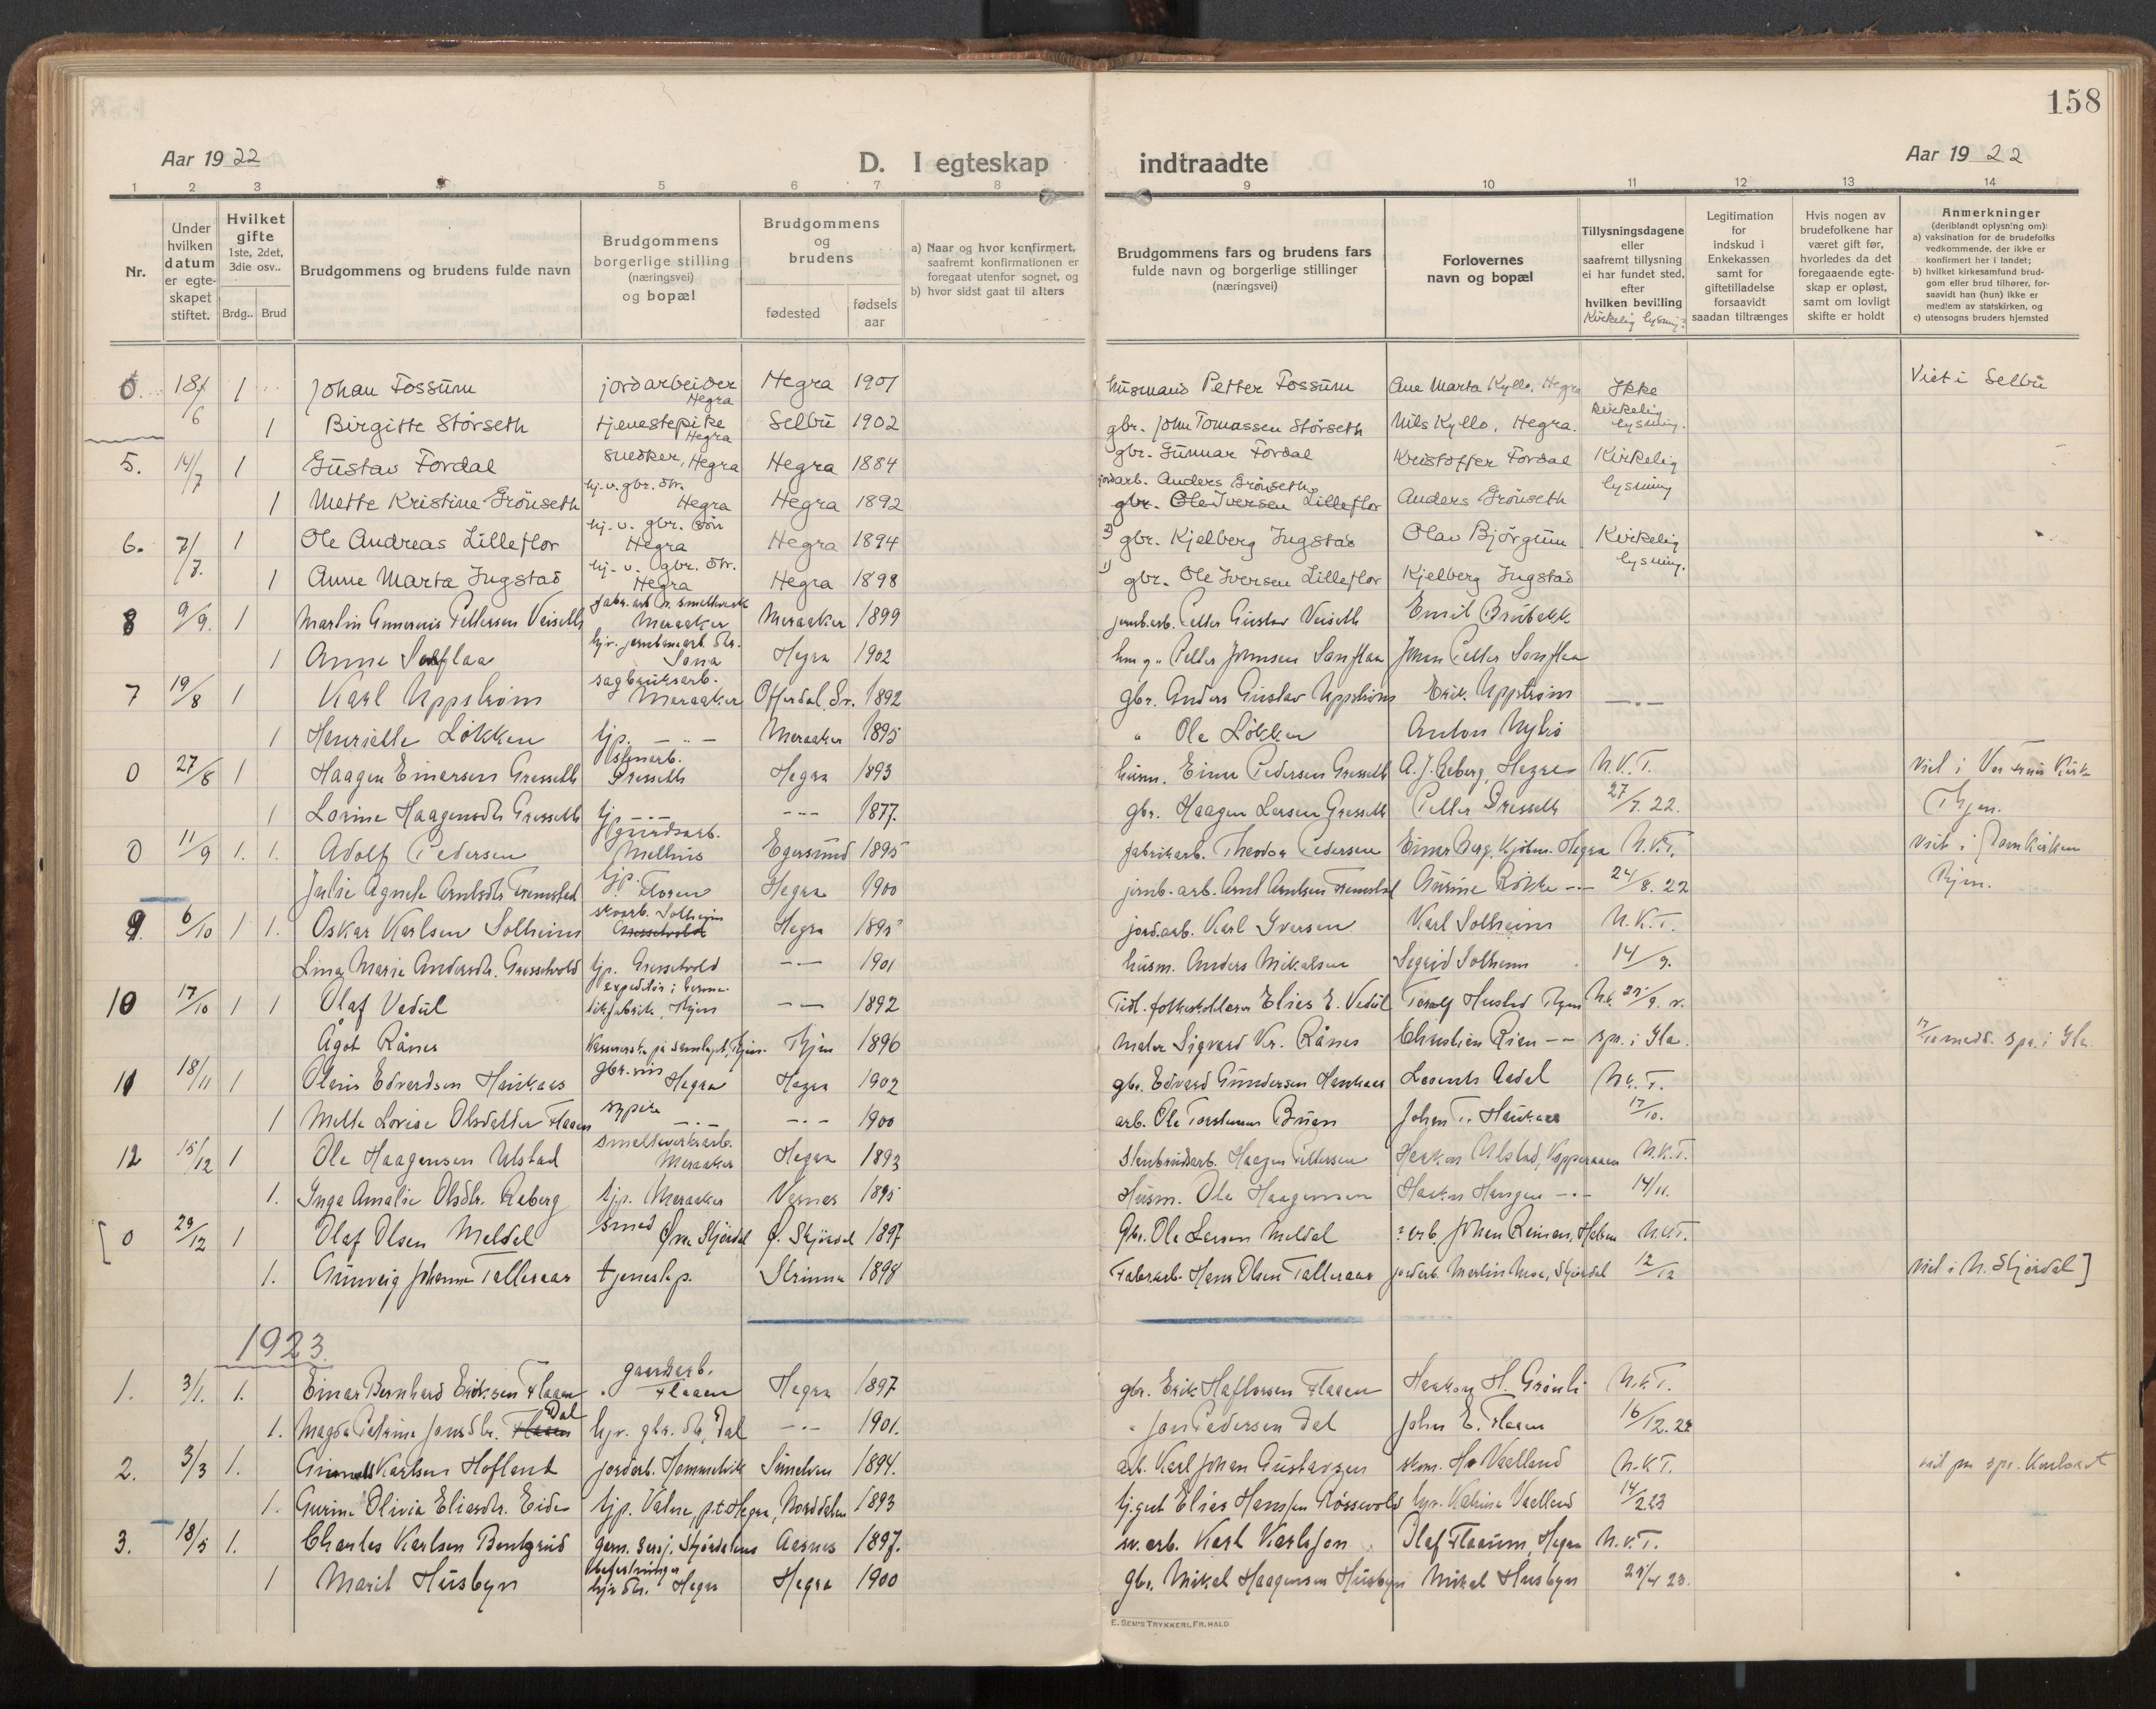 158
Aar 19 22
D. I egteskap
indtraadte
Aar 19 22
1 2 3 4 5 6 7 8 9 10 11 12 13 14
Nr.
Under hvilken datum er egteskapet stiftet.
Hvilket gifte 1ste, 2det, 3die osv..
Brdg.. Brud
Brudgommens og brudens fulde navn
Brudgommens borgerlige stilling (næringsvei) og bopæl
Brudgommens og brudens
fødested
fødsels aar
a) Naar og hvor konfirmert, saafremt konfirmationen er foregaat utenfor sognet, og
b) hvor sidst gaat til alters
Brudgommens fars og brudens fars fulde navn og borgerlige stillinger (næringsvei)
Forlovernes navn og bopæl
Tillysningsdagene eller saafremt tillysning ei har fundet sted, efter hvilken bevilling
Kirkelig lysning?
Legitimation for indskud i Enkekassen samt for giftetilladelse forsaavidt saadan tiltrænges
Hvis nogen av brudefolkene har været gift før, hvorledes da det foregaaende egteskap er opløst, samt om lovligt skifte er holdt
Anmerkninger (deriblandt oplysning om):
a) vaksination for de brudefolks vedkommende, der ikke er konfirmert her i landet;
b) hvilket kirkesamfund brudgom eller brud tilhører, forsaavidt han (hun) ikke er medlem av statskirken, og
c) utensogns bruders hjemsted
0. 18/6 1 Johan Fossum jordarbeider Hegra Hegra 1901 husmand Petter Fossum Ane Marta Kyllo, Hegra Ikke Viet i Selbu
1 Birgitte Störseth tjenestepike Hegra Selbu 1902 gbr. John Tomassen Störseth Nils Kyllo, Hegra. kirkelig lysning.
5. 14/7 1 Gustav Fordal snedker, Hegra Hegra 1884 gbr. Gunnar Fordal Kristoffer Fordal Kirkelig
1 Mette Kristine Grönseth hj. v. gbr. dtr. Hegra Hegra 1892 jordarb. Anders Grönseth gbr. Ole Iversen Lilleflor Anders Grönseth lysning
6. 7/7. 1 Ole Andreas Lilleflor hj. v. gbr. sön Hegra Hegra 1894 2) gbr. Kjelberg Ingstad Olav Bjørgum Kirkelig
1 Anne Marta Ingstad hj. v. gbr. dtr. Hegra Hegra 1898 1) gbr. Ole Iversen Lilleflor Kjelberg Ingstad lysning.
8 9/9. 1 Martin Pettersen Veiseth fabr. arb. v. smelteverk Meraaker Meraaker 1899 jernb.arb. Petter Gustav Veiseth Emil Brubakk
1 Anne hjv. jernbanearb. dtr. Sona Hegra 1902 Petter Johnsen Sonflaa Johan Petter Sonflaa
7 19/8 1 Karl Uppström sagbruksarb. Meraaker Offerdal, Sv. 1892 gbr. Anders Gustav Uppström Erik Uppström — " —
1 Henriette Løkken tjp. — " — Meraaker 1895 " Ole Løkken Anton Nybro
0 27/8 1 Haagen Einarsen Gresseth stenarb. Gresseth Hegra 1893 husm. Einar Pedersen Gresseth A. J. Reberg, Hegra N.K.T. viet i Vor Frue Kirke
1 Lorine Haagensdtr Gresseth tjp — " — — " — 1877. gbr. Haagen Larsen Gresseth Petter Gresseth 27/7. 22. Thjem.
0 11/9 1. 1. Adolf Pedersen grundsarb. Melhus Egersund 1895 fabrikarb. Theodor Pedersen Einar Berg, Kjøbm. Hegra N.K.T. viet i Domkirken
Julie Agnete Arntsdtr Tremstad tjp. Floren Hegra 1900 jernb. arb. Arnt Arntsen Gurine Rokke — " — 24/8. 22 Thjem.
9. 6/10 1 1. Oskar Karlsen Solheim skoarb. Solheim Hegra 1895 jordarb. Karl Iversen Karl Solheim N.K.T.
Lina Marie Andersdtr. Gressetvold tjp. Gressetvold — " — 1901 husm. Anders Mikalsen Sigrid Solheim 14/9.
10 17/10 1 1 Olaf Vedul expeditør i fabrik, Thjem — " — 1892 Tidl. folkeskolelærer Elias E. Vedul Torolf Husted Thjem
Ågot Rånes Thjem 1896 Maler Sigvard Kr. Rånes Christian Rian — " — spr. i Ila. 17/10 medd. spr. i Ila.
11 18/11 1 Olaus Edvardsen Haukaas gbr. søn Hegra Hegra 1902 gbr. Edvard Gundersen Haukaas N.K.T.
1 Mette Lovise Olsdatter Flaan sypike — " — — " — 1900 arb. Ole Torstensen Bruen Johan T. Haukaas 17/10.
12 15/12 1 Ole Haagensen Ulstad smelteverksarb. Meraaker Hegra 1893 Stenbruddsarb. Haagen Pettersen Haakon Ulstad, Kopperaaen N.K.T.
1. Inga Amalie Olsdtr. Reberg tjp. Meraaker Værnes 1895 Husm. Ole Haagensen Haugen — " — 14/11.
[ 0 29/12 1 Olaf Olsen Meldal smed Øvre Stjørdal Ø. Stjørdal 1897 Gbr. Ole Larsen Meldal N.K.T.
1. Gunveig Johanne Talleraas tjenestep. Strinna 1898 Fabr.arb. Hans Olsen Talleraas jordarb. Martin Moe, Stjørdal 12/12 viet i N. Stjørdal ]
1923.
1. 3/1. 1. Einar Bernhard Eriksen Flaan gaardsarb. Flaan Hegra 1897 gbr. Erik Haftorsen Flaan Haakon H. Grönli N.K.T.
1. Magda Petrine Jonsdtr. Flaan Dal hjv. gbr. dtr, Dal — " — 1901. " Jon Pedersen Dal John E. Flaan 16/12. 22
2. 3/3 1. Karlsen Hofland jordarb. Hommelvik Sunnelven 1894. arb. Karl Johan Gustavsen skom. H. Vaelland N.K.T.
1. Gurine Olivia Eliasdtr. Eide tjp. p.t. Hegra, Norddalen 1893 Elias Hanssen Røssevold Katrine Vaelland 14/2 23
3. 18/5 1. Charles Karlsen Bentgrud garn. sersj. Stjørdalens befestninger Aasnes 1897. Karl Karlsson Olaf Flaarum, Hegra N.K.T.
1 Marit Husbyn hjv dtr. Hegra Hegra 1900 Gbr. Mikal Haagensen Husbyn Mikal Husbyn 25/4 23.
E. SEM'S TRYKKERI, FR.HALD